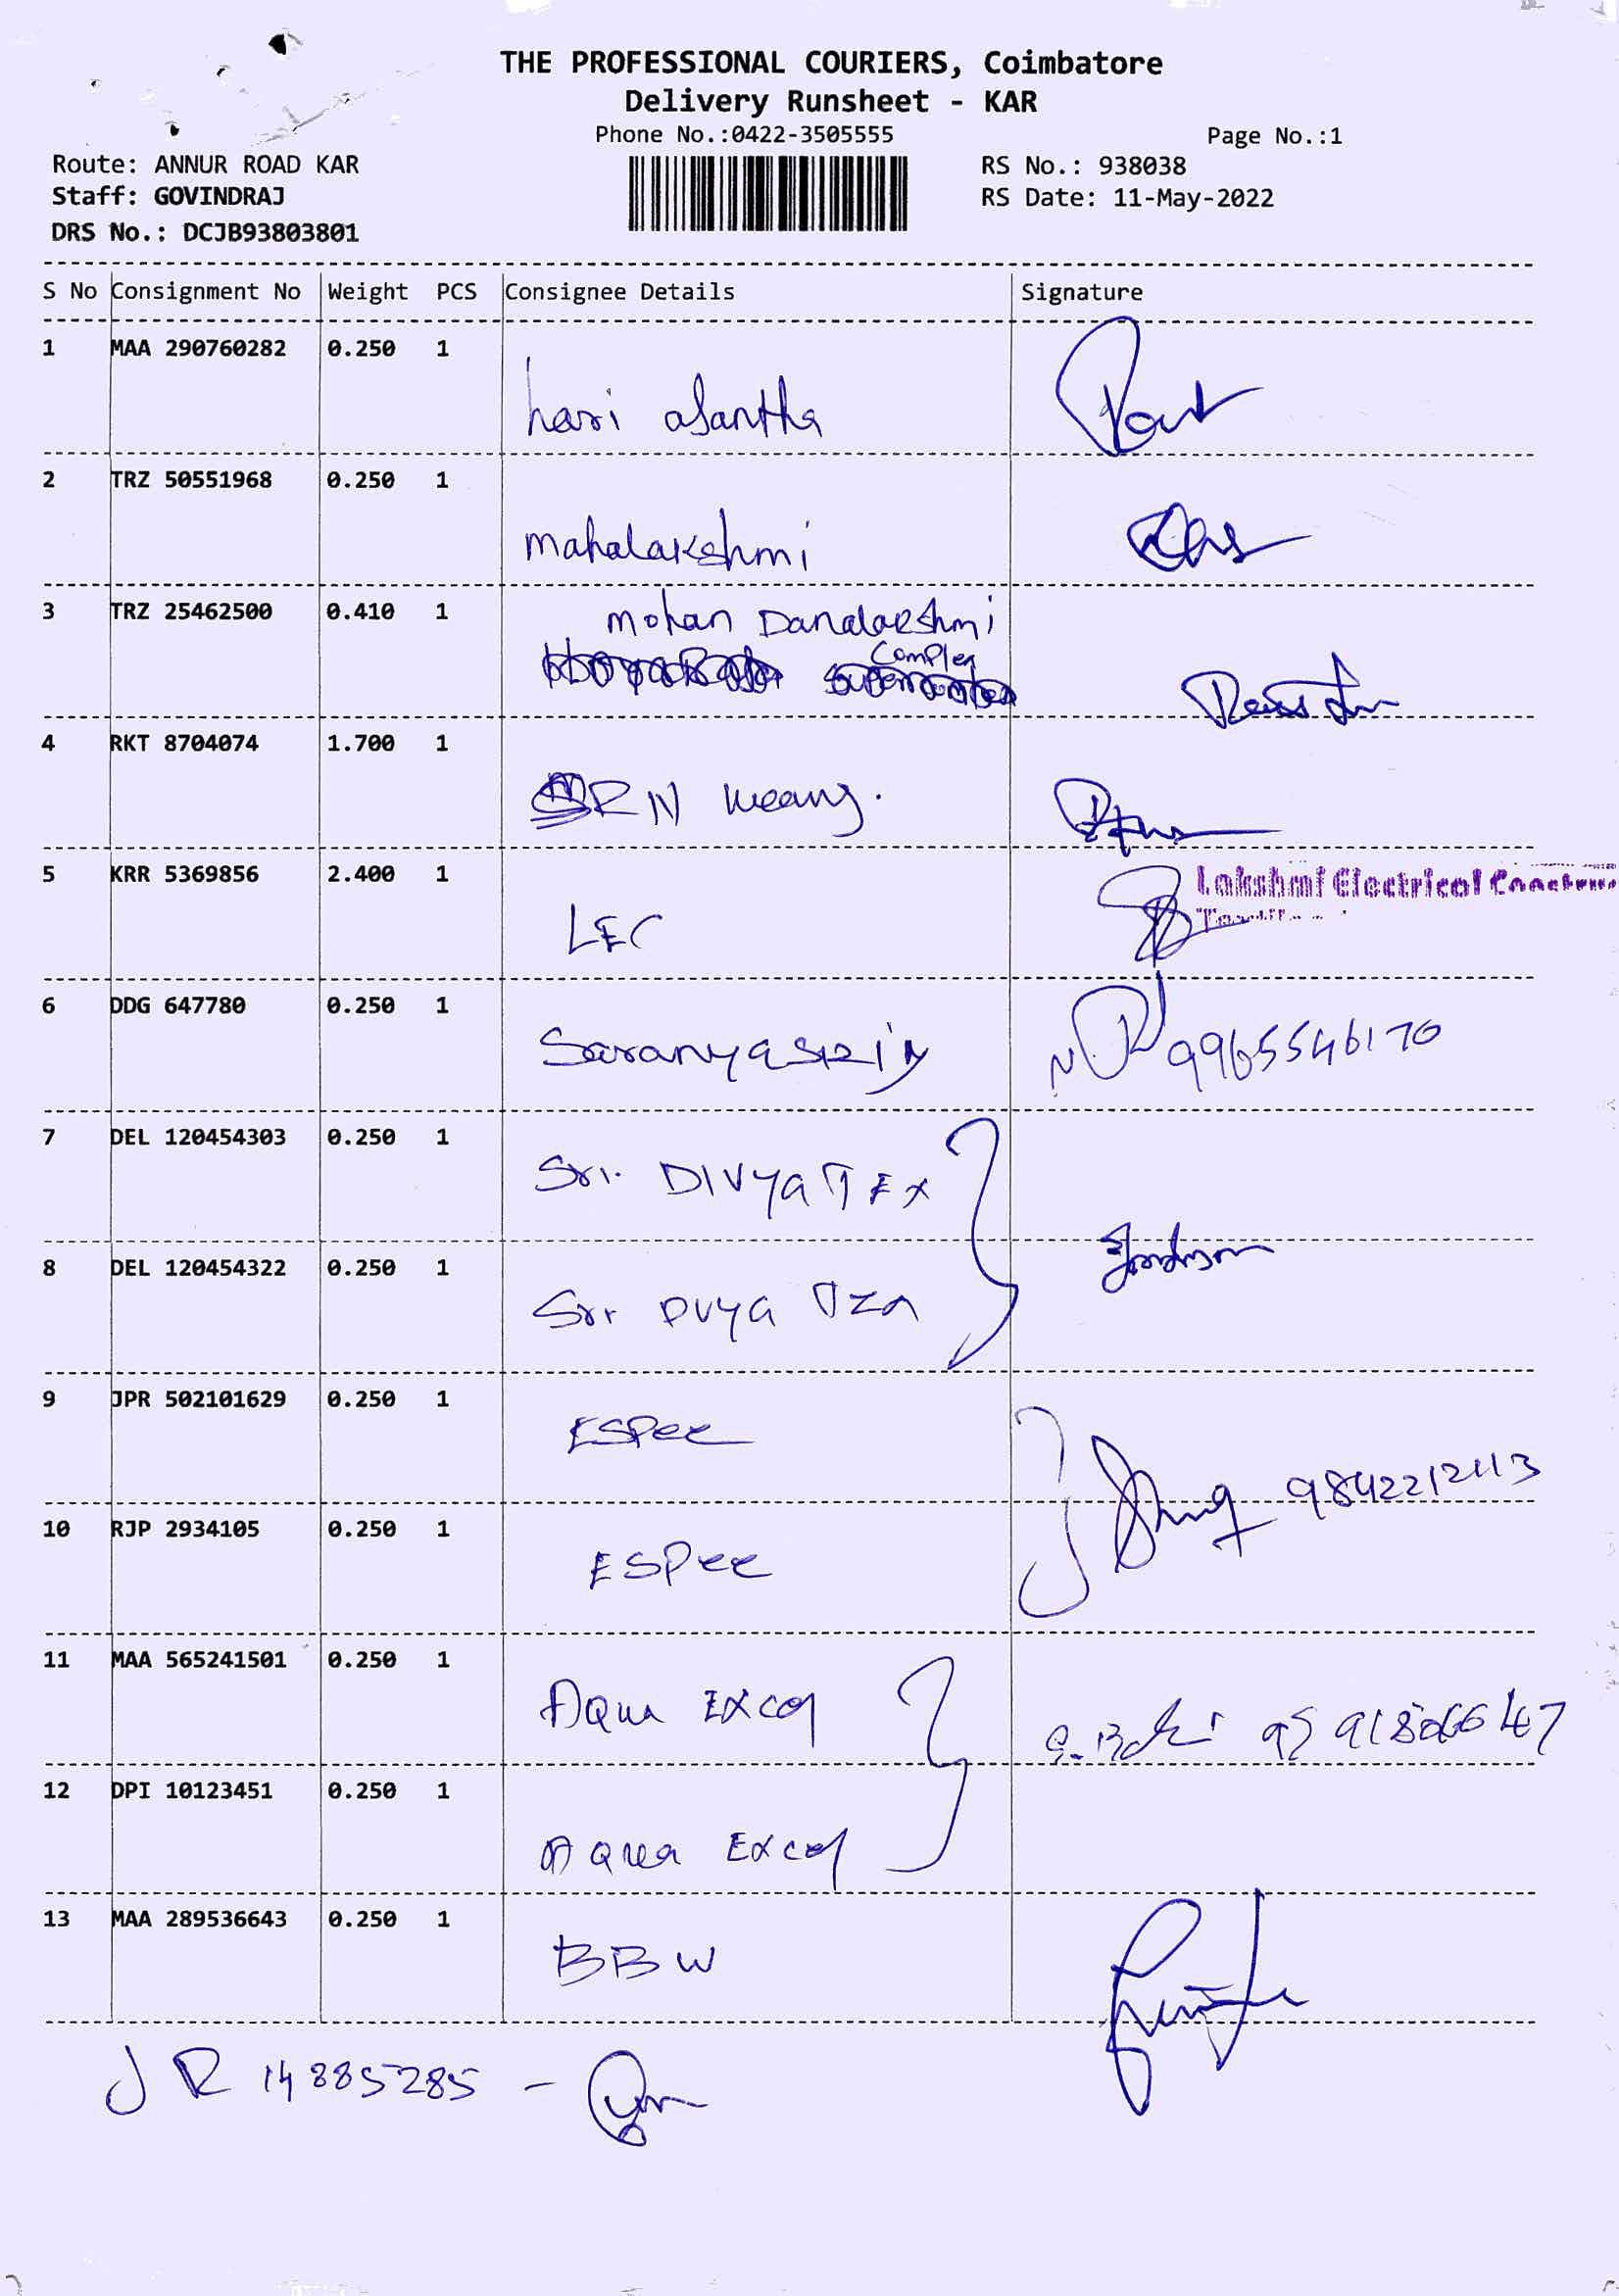 THE PROFESSIONAL COURIERS, Coimbatore
Delivery Runsheet - KAR
Phone No.:0422-3505555
Page No.:1
Route: ANNUR ROAD KAR
RS No.: 938038
Staff: GOVINDRAJ
RS Date: 11-May-2022
DRS No.: DCJB93803801
S No Consignment No Weight PCS Consignee Details Signature
1 MAA 290760282 0.250 1
hari
2 TRZ 50551968 0.250 1
mahalakshmi
3 TRZ 25462500 0.410 1
mohan Danalakshmi
Complex
4 RKT 8704074 1.700 1
RN
5 KRR 5369856 2.400 1
Lakshmi Electrical
LEC
6 DDG 647780 0.250 1
9965546170
7 DEL 120454303 0.250 1
Sri. DIVya TEx
8 DEL 120454322 0.250 1
Sri
9 JPR 502101629 0.250 1
ESPee
9842212113
10 RJP 2934105 0.250 1
ESPee
11 MAA 565241501 0.250 1
Aqua Excel
12 DPI 10123451 0.250 1
Aqua Excel
13 MAA 289536643 0.250 1
BBW
JR 14885285 -